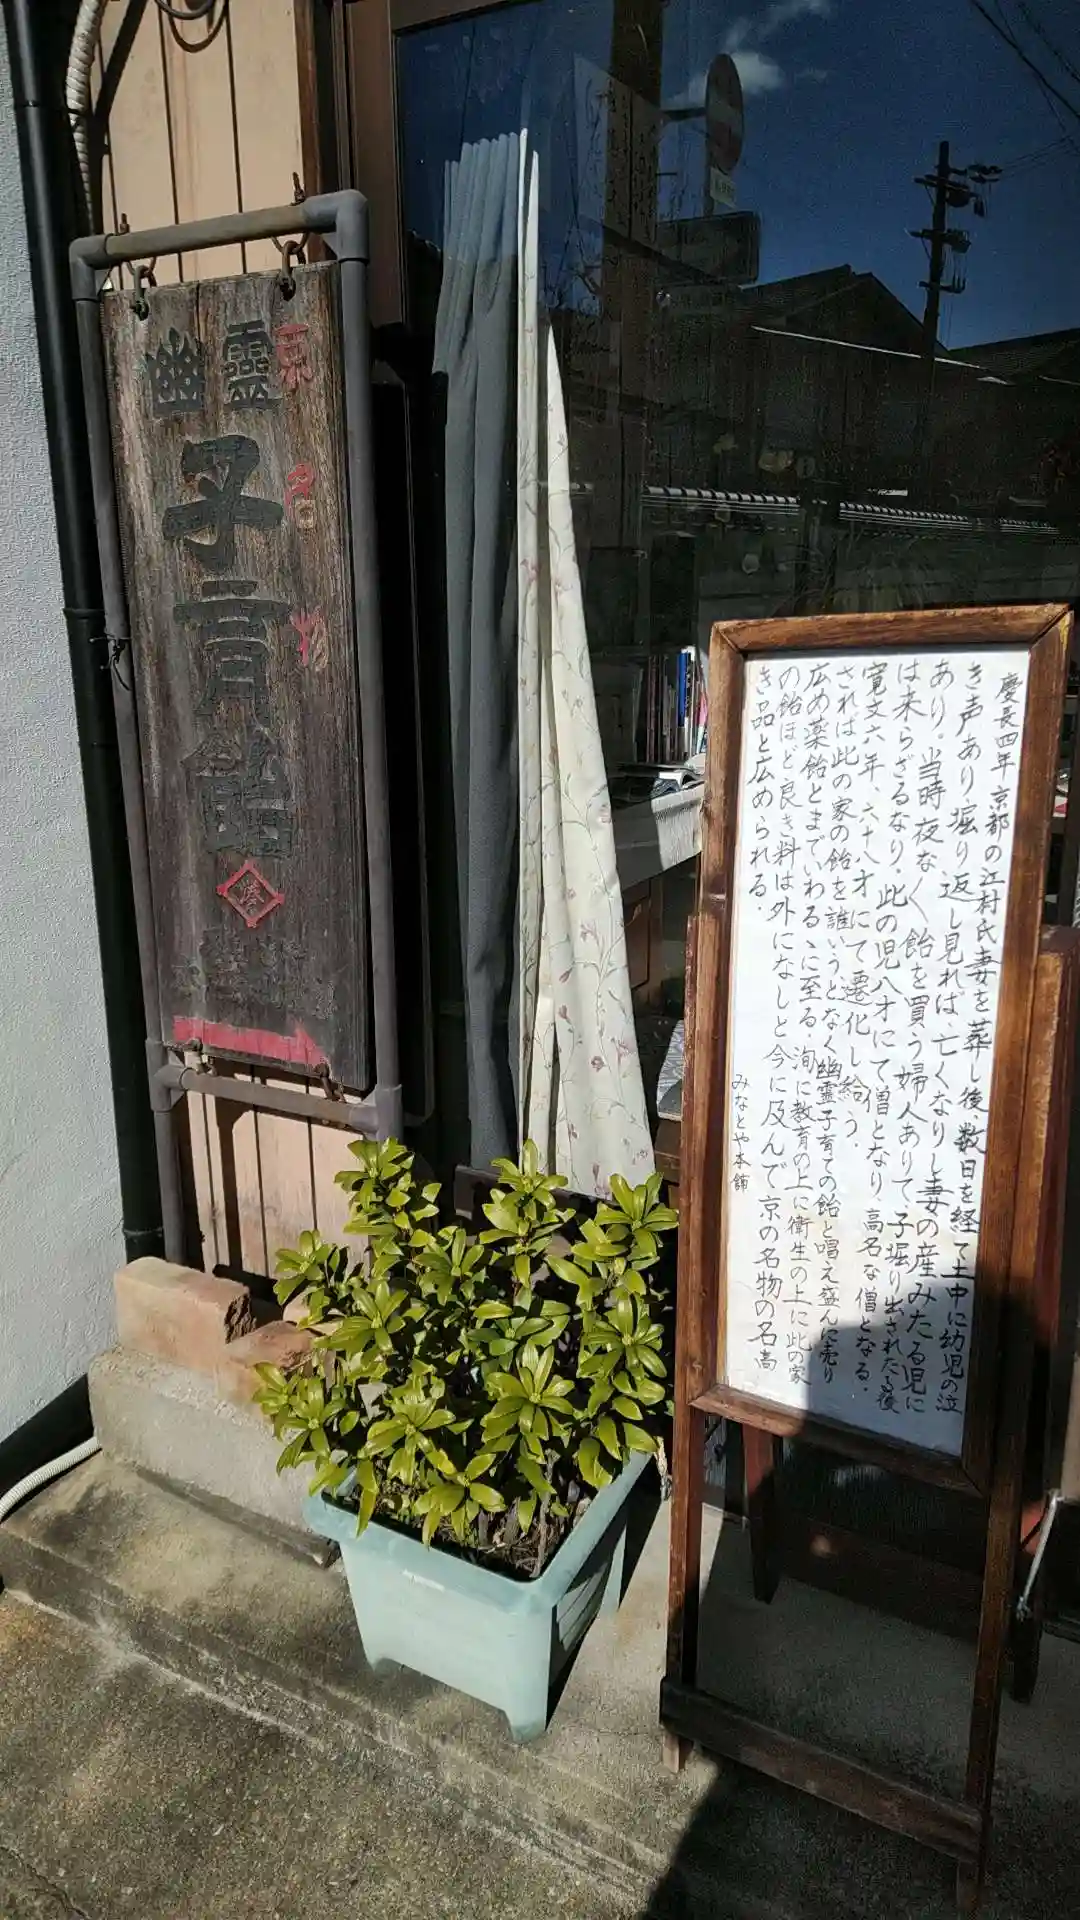 京名物
幽靈
子育飴
慶長四年京都の江村氏妻を葬し後、数日を経て土中に幼児の泣
き声あり堀り返し見れば、亡くなりし妻の産みたる児に
あり。当時夜な〱飴を買う婦人ありて子堀り出されたる後
は来らざるなり。此の児八才にて僧となり高名な僧となる。
寛文六年、六十八才にて遷化し給う。
されば此の家の飴を誰いうとなく幽霊子育ての飴と唱え盛んに売り
広め薬飴とまでいわるゝに至る。洵に教育の上に衛生の上に此の家
の飴ほど良き料は外になしと今に及んで京の名物の名高
き品と広められる。
みなとや本舗